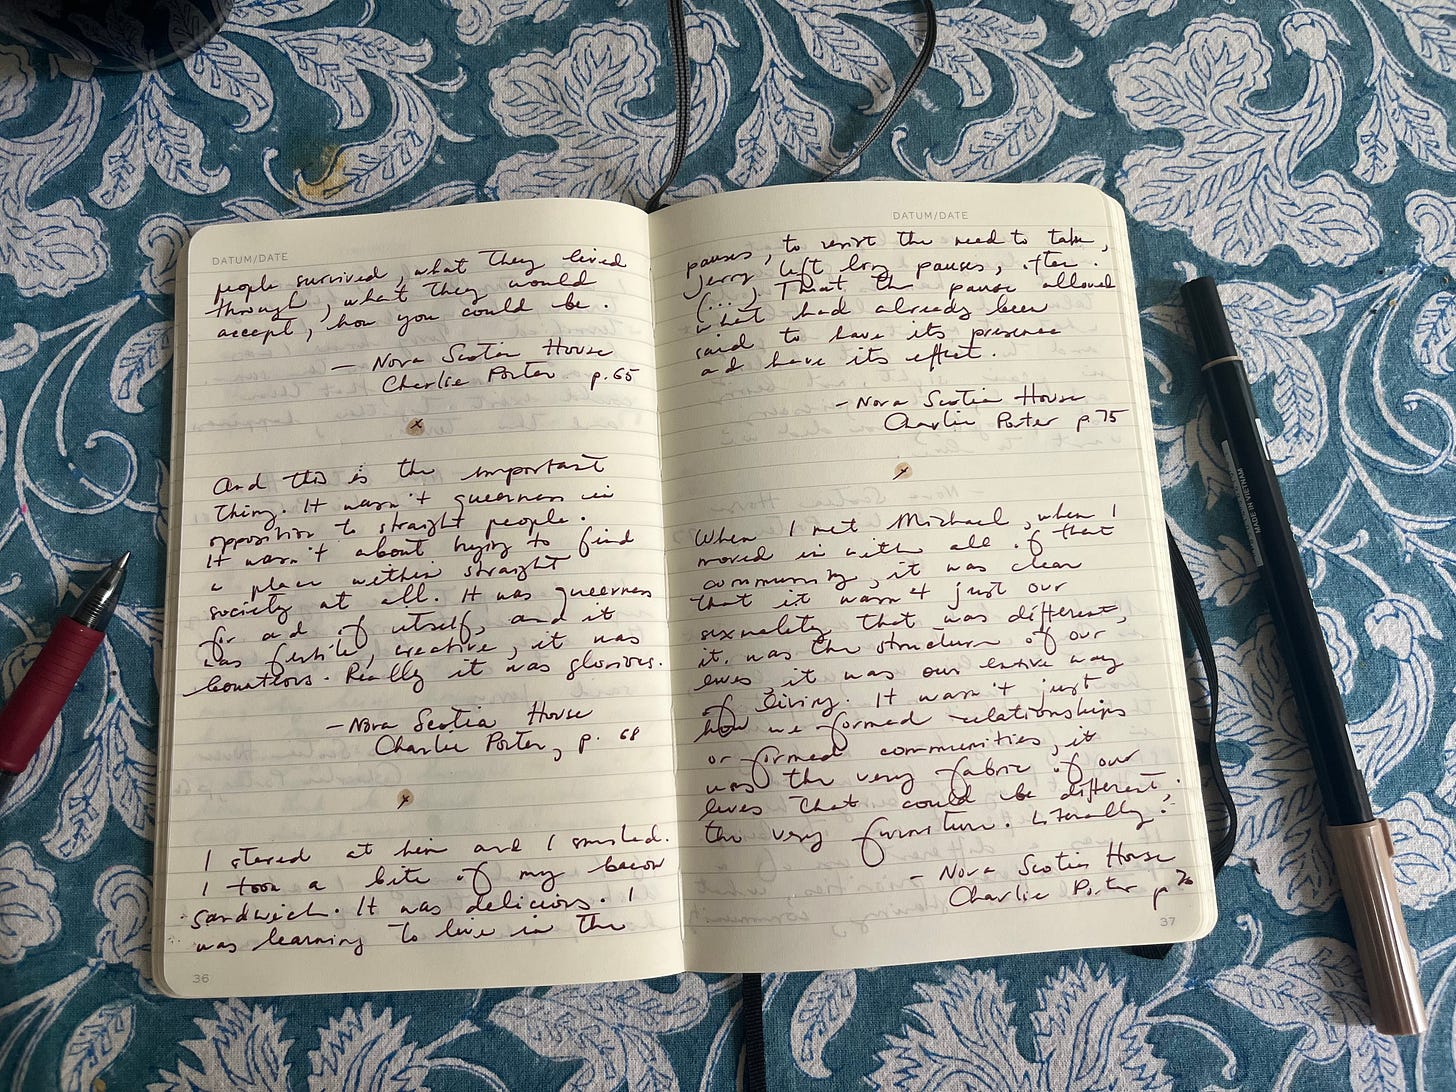 DATUM/DATE
people survived, what they lived
through, what they would
accept, how you could be.
— Nova Scotia House
Charlie Porter p. 65
x
And this is the important
thing. It wasn't queerness in
opposition to straight people.
It wasn't about trying to find
a place within straight
society at all. It was queerness
for and of itself, and it
was fertile, creative, it was
bounteous. Really it was glorious.
— Nova Scotia House
Charlie Porter, p. 68
x
I stared at him and I smiled.
I took a bite of my bacon
sandwich. It was delicious. I
was learning to live in the
36
DATUM/DATE
pauses, to resist the need to talk,
Jerry left long pauses, often.
(...). That the pause allowed
what had already been
said to have its presence
and have its effect.
— Nova Scotia House
Charlie Porter p. 75
x
When I met Michael, when I
moved in with all of that
community, it was clear
that it wasn't just our
sexuality that was different,
it was the structure of our
lives, it was our entire way
of living. It wasn't just
how we formed relationships
or formed communities, it
was the very fabric of our
lives that could be different,
the very furniture. Literally!
— Nova Scotia House
Charlie Porter p 76
37
MADE IN VIETNAM